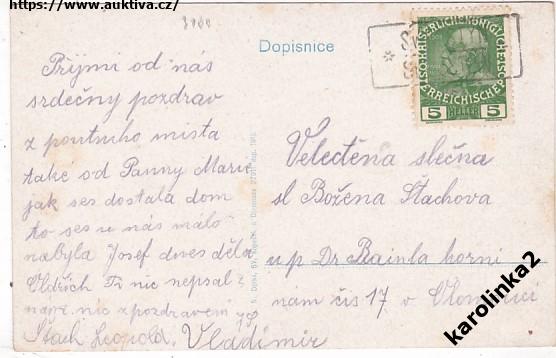 https://www.auktiva.cz/
Dopisnice
Přijmi od nás
srdečný pozdrav
z poutního mista
take od Panny Marie
jak ses dostala dom
to ses u nás málo
nabyla Josef dnes děla
Oldřich Ti nic nepsal
nic z pozdravem
Stach Leopold, Vladimir
KAISERLICHE KÖNIGLICHE
ÖSTERREICHISCHE POST
5 HELLER 5
Velectěna slečna
sl Božena Štachova
u p Dr Rainla horni
nám čis 17 v Olomouci
karolinka2